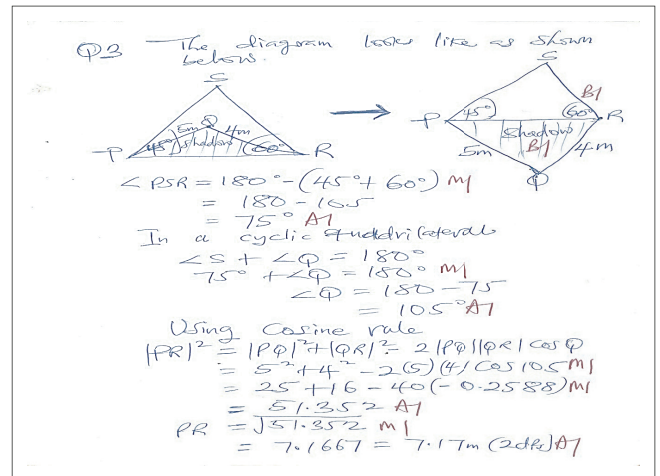 Q3 The diagram looks like as shown
below.
S
Q
5m 4m
45° shadow 60°
P R
S
B1
45° 60°
P R
Shadow
B1
5m 4m
Q
<PSR = 180° - (45° + 60°) M1
= 180 - 105
= 75° A1
In a cyclic quadrilateral
<S + <Q = 180°
75° + <Q = 180° M1
<Q = 180 - 75
= 105° A1
Using Cosine rule
|PR|² = |PQ|² + |QR|² - 2|PQ||QR| cos Q
= 5² + 4² - 2(5)(4) Cos 105 M1
= 25 + 16 - 40(-0.2588) M1
= 51.352 A1
PR = √51.352 M1
= 7.1667 = 7.17m (2dps) A1